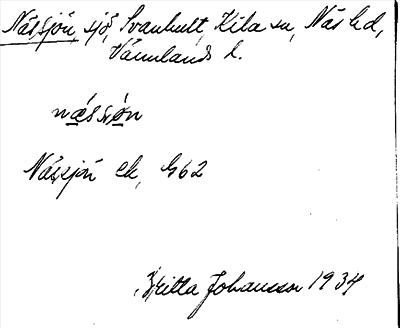 Nässjön, sjö, Svanhult, Kila sn, Näs hd,
Värmlands l.
nǽssjø̀n
Nässjö ek, h62
Britta Johansson 1934